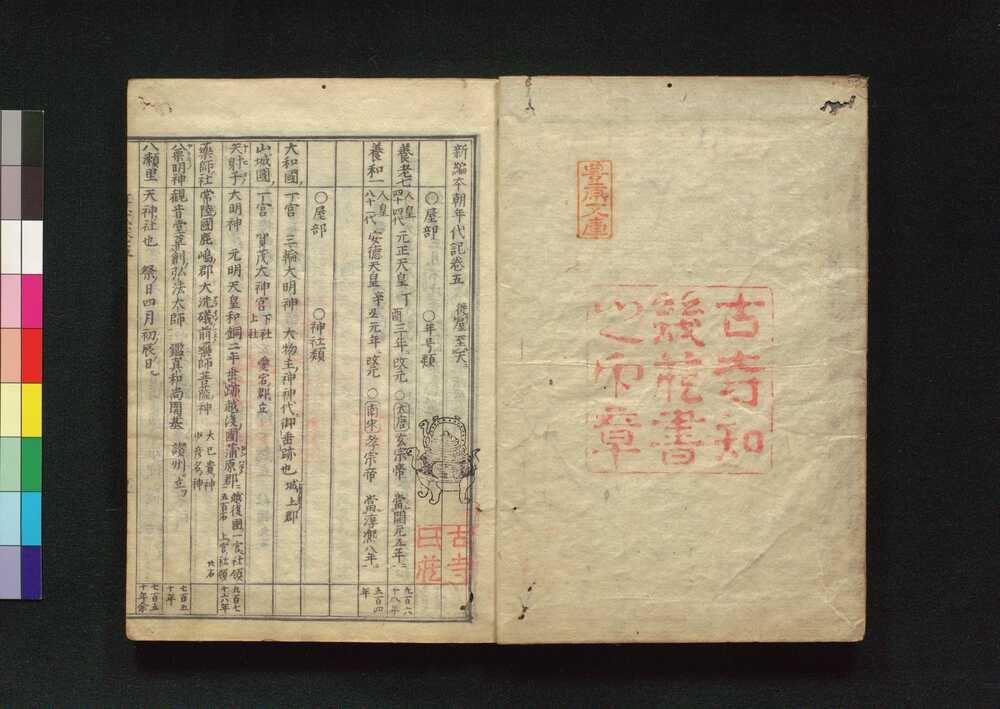 文庫
古寺知
幾蔵書
之印章
新編本朝年代記巻五 従屋至天
○屋部 ○年号類
養老七 人皇四十四代 元正天皇 丁酉 三年改元 ○大唐 玄宗帝 當開元五年 九百六十八年
養和一 人皇八十一代 安徳天皇 辛丑元年改元 ○南宋 孝宗帝 當淳熙八年 五百四年
○屋部 ○神社類
大和國 丁宮 三輪大明神 大物主神神代御垂跡也 城上郡
山城國 丁宮 賀茂大神宮 下社 上社 愛宕郡立
天財子 大明神 元明天皇和銅二年垂跡越後國蒲原郡 越後國一宮社領五百石 九百七十六年
薬師社 常陸國鹿嶋郡大洗礒前薬師菩薩神 大已貴神 少彦名神
薬明神 觀音堂草創弘法大師 鑑真和尚開基 讃州立 七百五十年
八瀬里 天神社也 祭日四月初辰日 七百五十年余
古寺